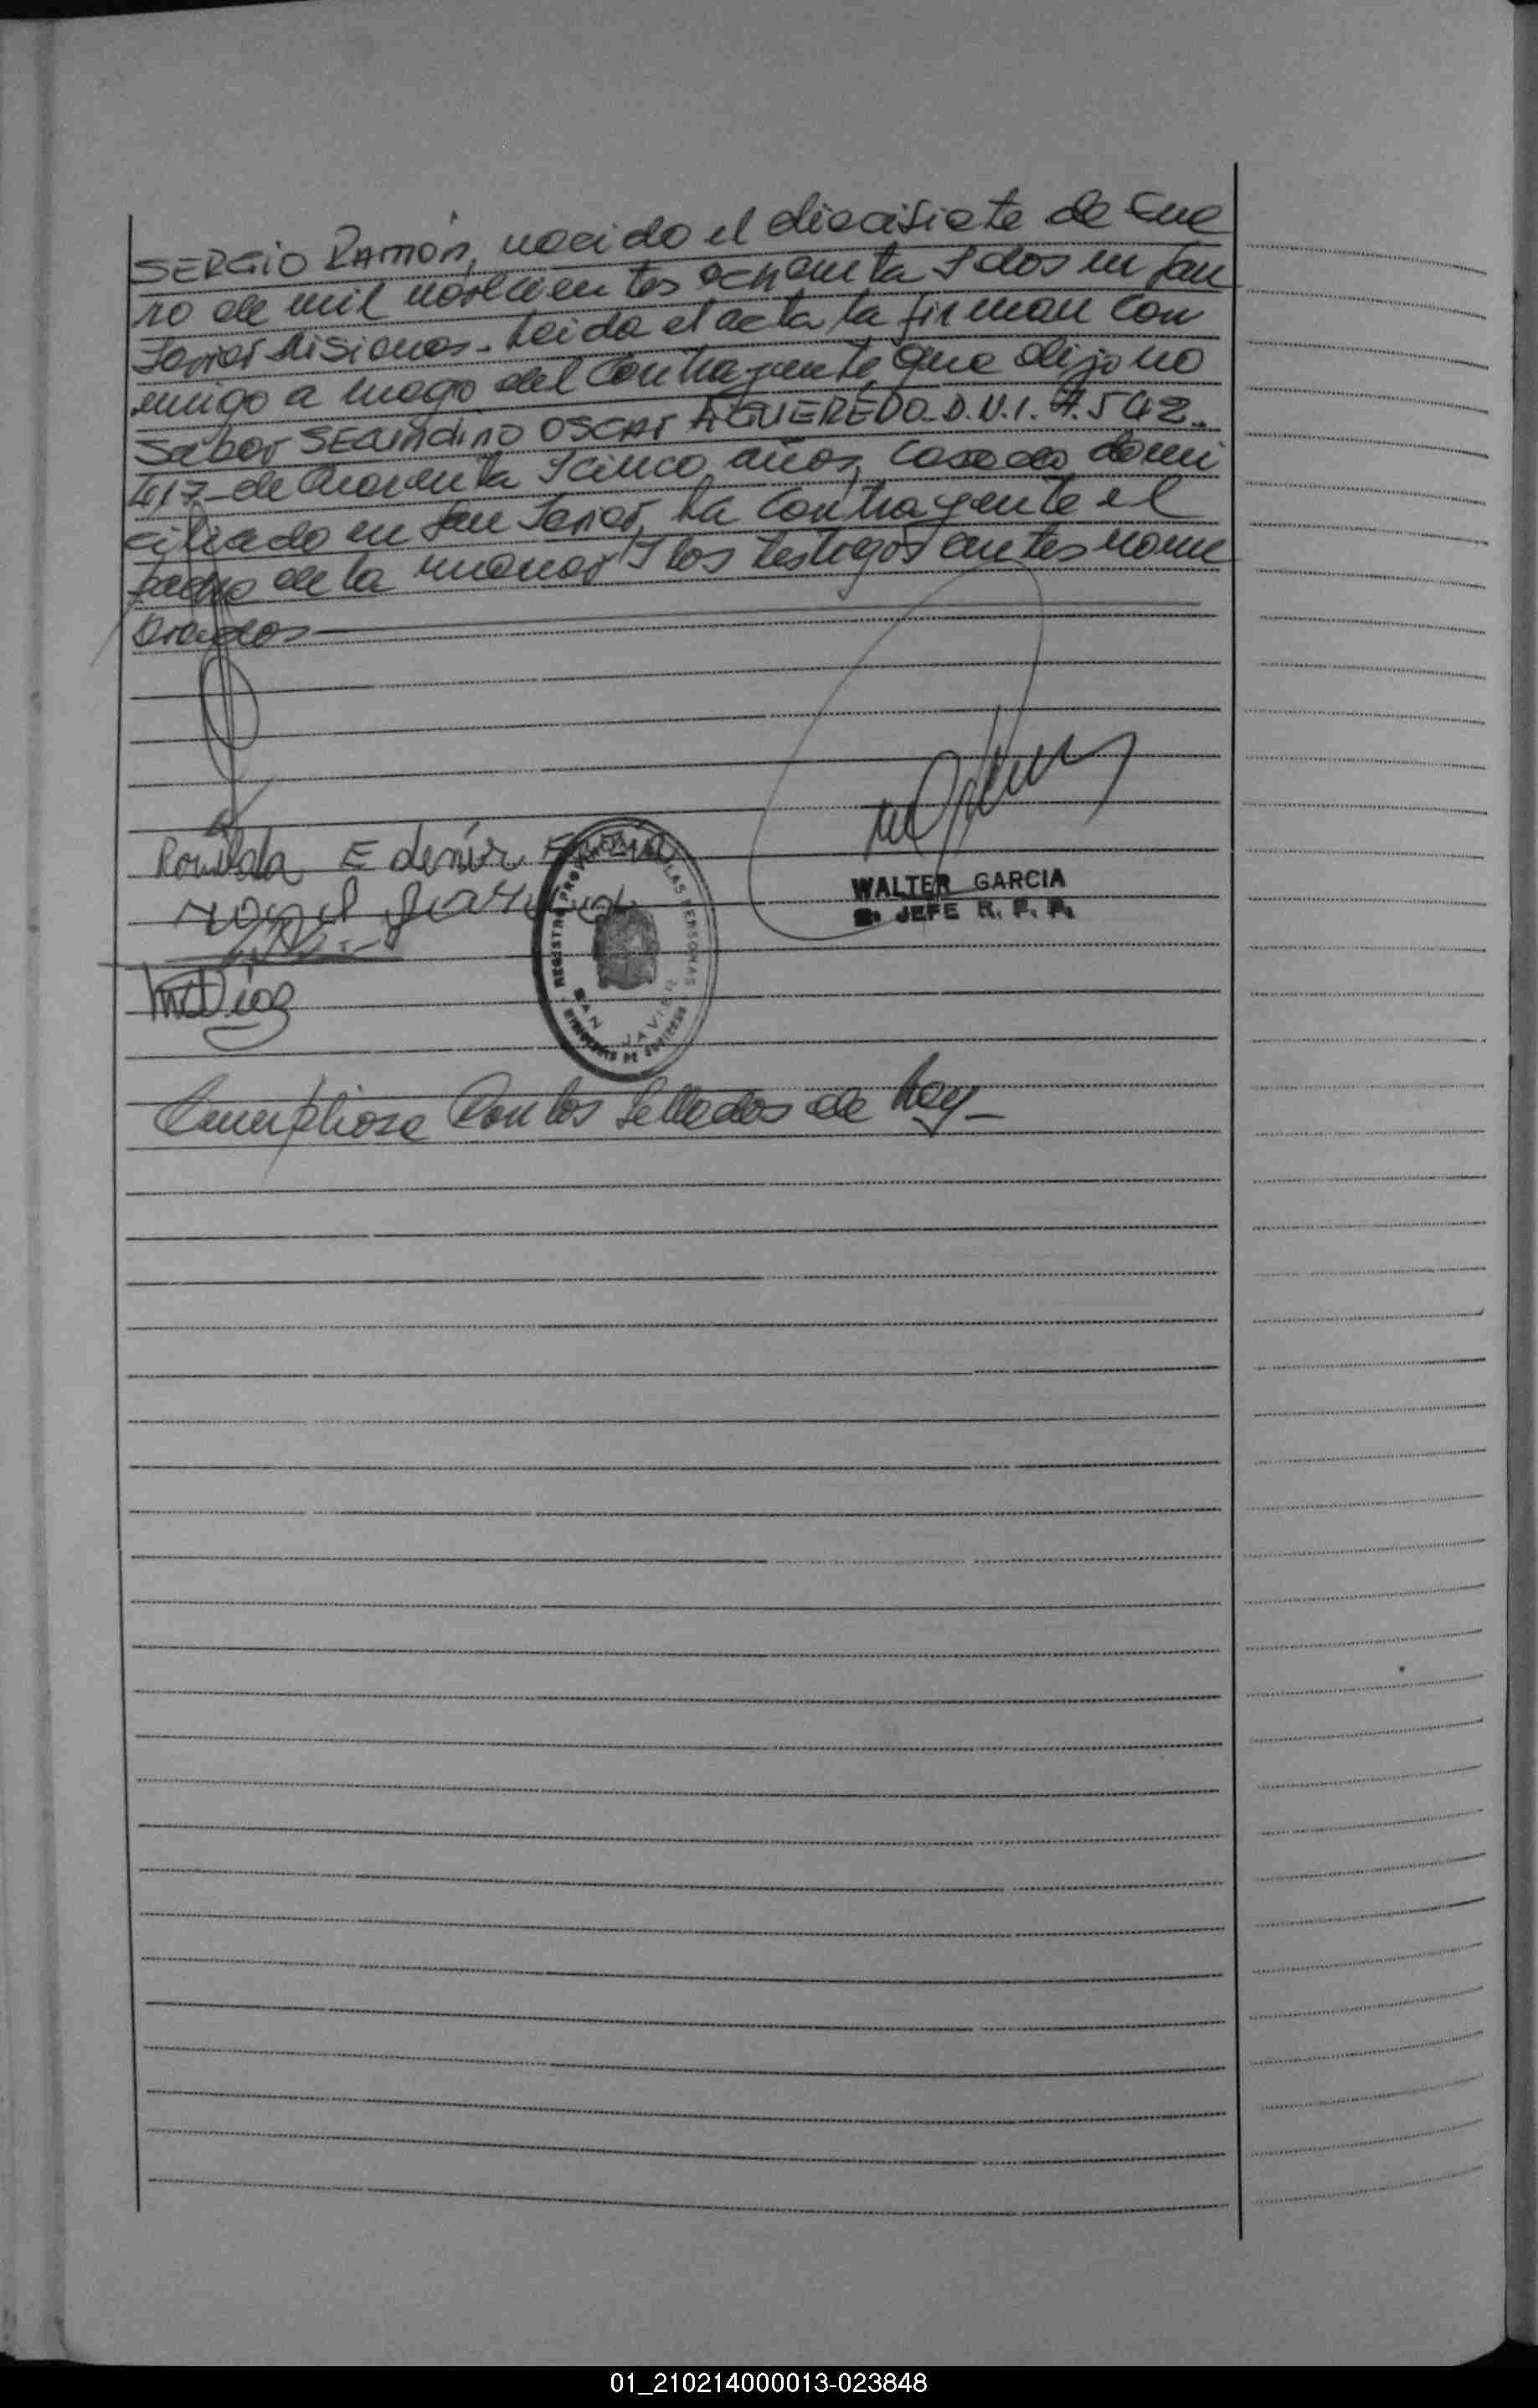 SERGIO RAMÓN, nacido el diecisiete de Ene
ro de mil novecientos ochenta y dos en San
Javier Misiones - Leida el acta la firman con
migo a ruego del Contrayente, que dijo no
saber SEGUNDINO OSCAR AGUEREDO - D.N.I. 7.542.
417 - de cuarenta y cinco años, casado, domi
ciliado en San Javier, La Contrayente el
padre de la menor y los testigos antes nom
brados
Romilda Edenir
M Diaz
WALTER GARCIA
JEFE R. P. P.
REGISTRO PROVINCIAL DE LAS PERSONAS
SAN JAVIER
Cumpliose con los Sellados de Ley -
01_210214000013-023848